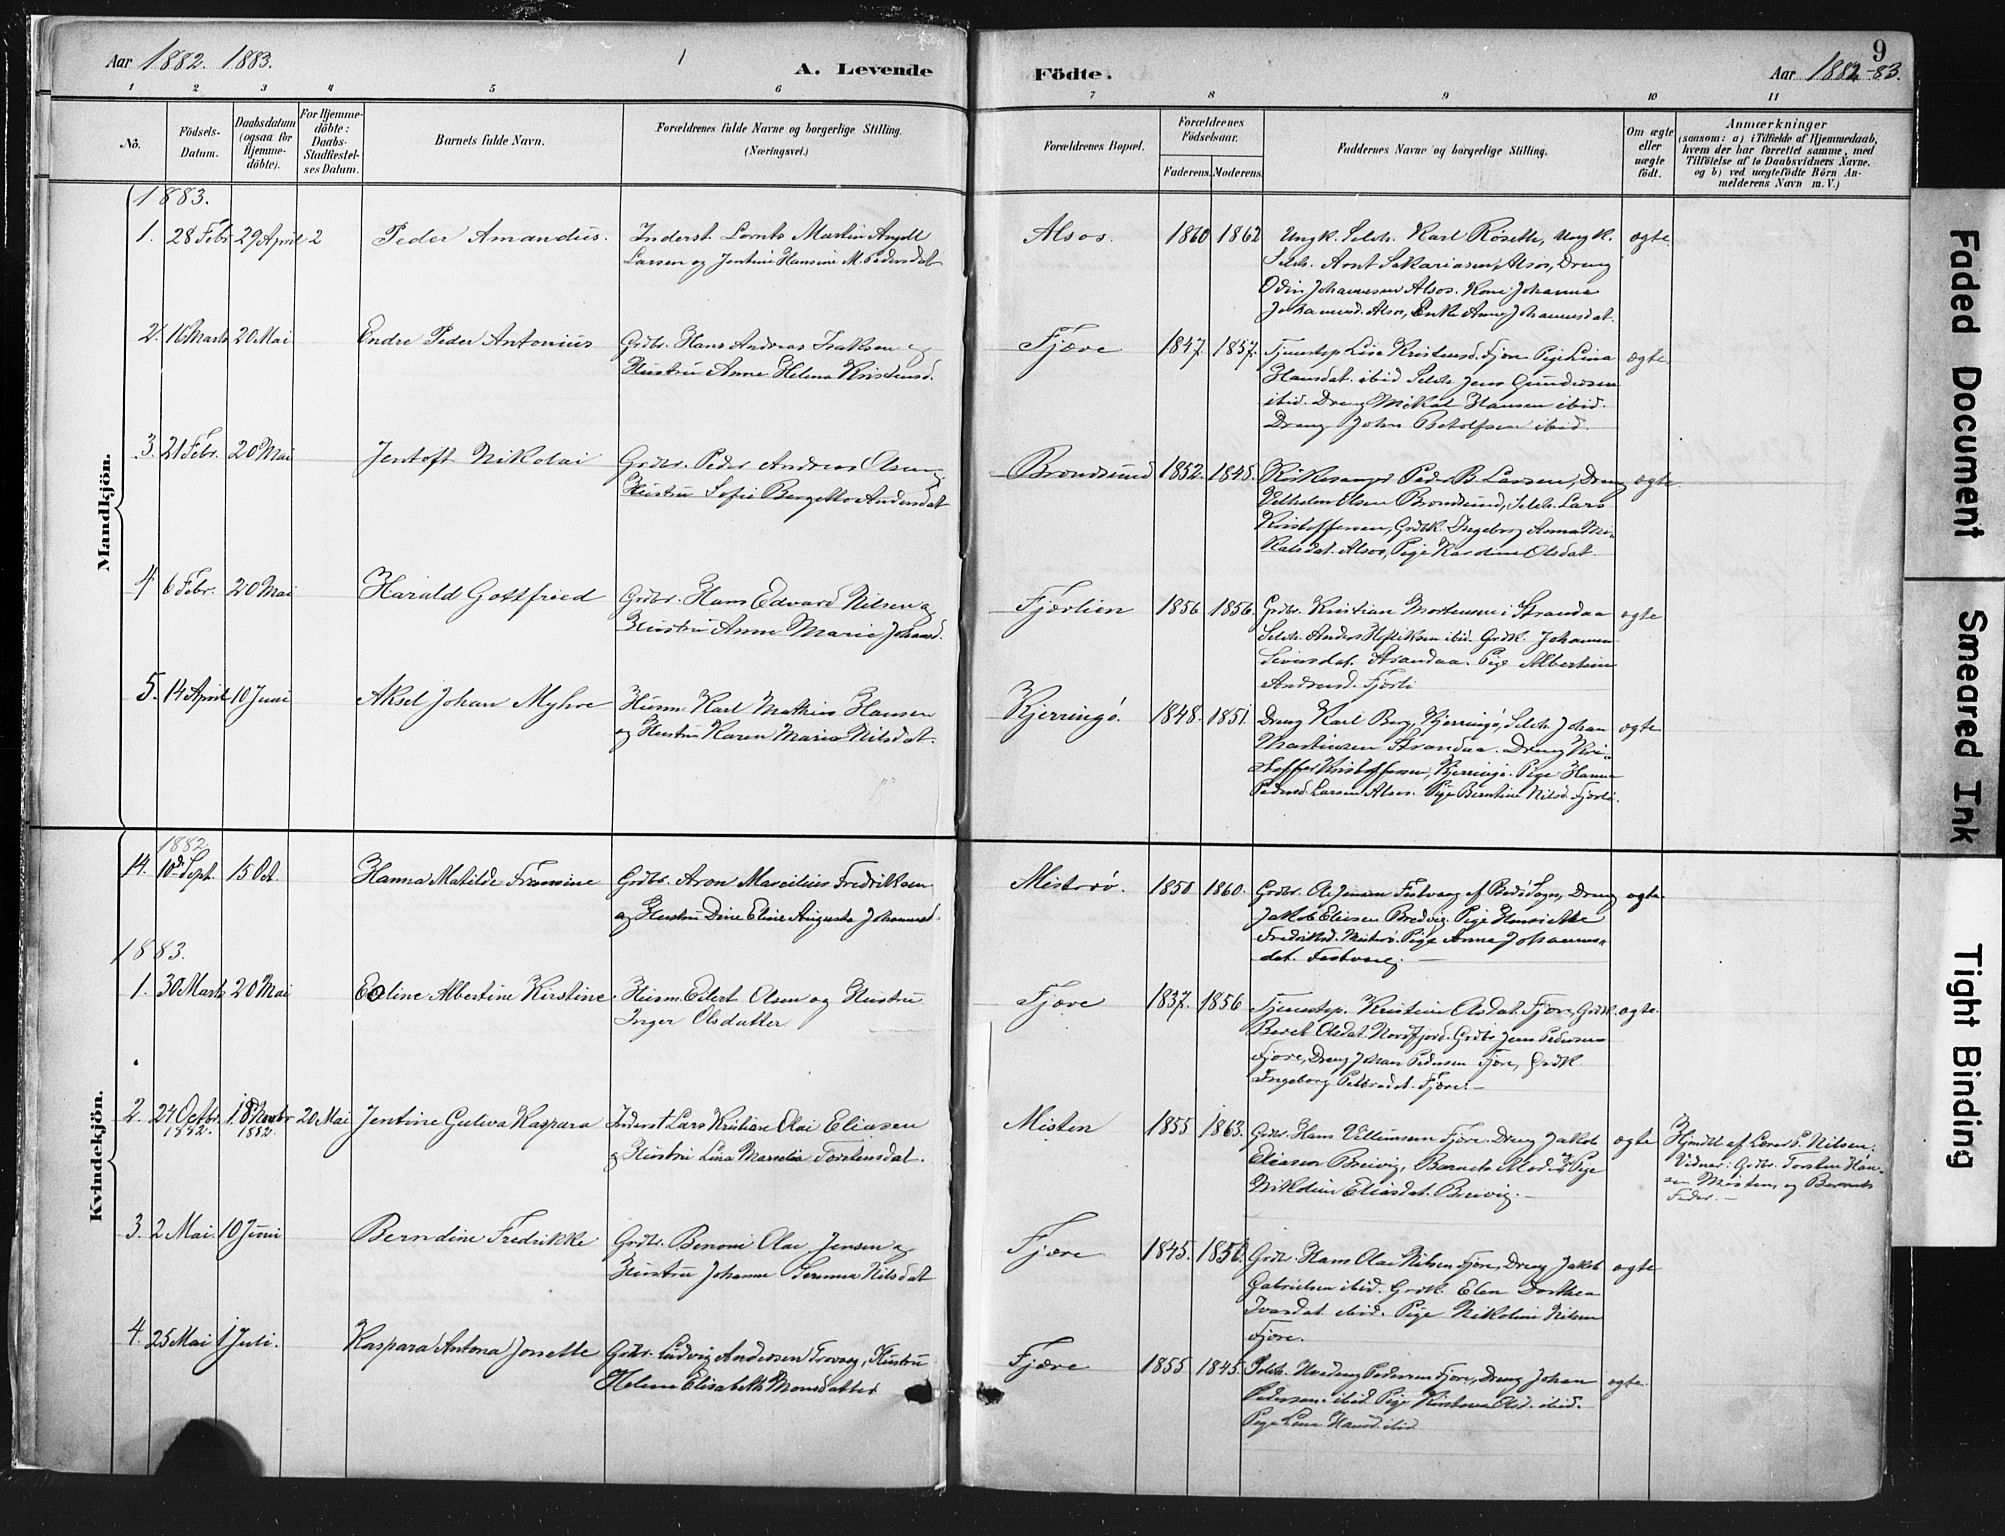 Aar 1882. 1883.
1
A. Levende
Födte.
Aar 1882-83.
9
1 2 3 4 5 6 7 8 9 10 11
No.
Födsels-
Datum.
Daabsdatum
(ogsaa for
Hjemme-
döbte).
For Hjemme-
döbte:
Daabs-
Stadfæstel-
ses Datum.
Barnets fulde Navn.
Forældrenes fulde Navne og borgerlige Stilling.
(Næringsvei.)
Forældrenes Bopæl.
Forældrenes
Födselsaar.
Faderens. Moderens.
Faddernes Navne og borgerlige Stilling.
Om ægte
eller
uægte
födt.
Anmærkninger
(saasom: a) i Tilfælde af Hjemmedaab,
hvem der har forrettet samme, med
Tilföielse af to Daabsvidners Navne.
og b) ved uægtefödte Börn An-
melderens Navn m. V.)
Mandkjön.
1883.
1. 28 Febr 29 April 2 Peder Amandus. Inderst Lornts Martin Angell
Larsen og Jentine Hansine M. Pedersdat
Alsos. 1860 1862 Ungk. Selvh. Karl Røsette, Ungk. ægte
Selvh. Arnt Sakariasen Alsos, Dreng
Odin Johannesen Alsos. Kone Johanna
Johannesd. Alsos, Enke Anne Johannesdat.
2. 16 Marts 20 Mai Endre Peder Antonius Grdbr. Hans Andreas Isaksen og
Hustru Anne Helena Kristensd.
Fjære 1847. 1857. Tjenestep Lise Kristensd. Fjære Pige Lina ægte
Hansdat. ibid Selvh. Jens Gundersen
ibid. Dreng Mikal Hansen ibid.
Dreng John Betolfsen ibid.
3. 21 Febr. 20 Mai Jentoft Nikolai Grdbr. Peder Andreas Olsen og
Hustru Sofie Bergette Andersdat
Brændsund 1852. 1845. Kirkesanger Peder B. Larsen, Dreng ægte
Vilhelm Olsen Brændsund, Selvh. Lars
Kristoffersen, Grdbk. Ingeborg Anna Mi-
kalsdat. Alsos, Pige Karoline Olsdat.
4. 6 Febr. 20 Mai Harald Gottfried Grdbr. Hans Edvard Nilsen og
Hustru Anne Marie Johansd.
Fjærlien 1856 1856. Grdbr. Kristian Mortensen i Strandaa ægte
Selvh. Anders ibid. Grdk. Johanna
Siversdat. Strandaa. Pige Albertine
Andersd. Fjærli
5. 14 April 10 Juni Aksel Johan Myhre Husm. Karl Mathias Hansen
og Hustru Karen Marie Nilsdat.
Kjerringö. 1848. 1851. Dreng Karl Berg, Kjerringö, Selvh. Johan ægte
Martinsen Strandaa. Dreng Kri-
stoffer Kristoffersen, Kjerringö. Pige Hanna
Pedersd. Larsen Alsos. Pige Berntine Nilsd. Fjærli.
Kvindekjön.
1882
14. 10de Sept. 15 Oct. Hanna Matilde Fransine Grdbr. Aron Marcilius Fredriksen
og Hustru Dine Eline Augusta Johannesd.
Mistrø. 1850 1860. Grdbr. Ole Jensen Festvaag af Bodö Sogn, Dreng ægte.
Jakob Eliesen Bredvig. Pige Henriette
Fredriksd. Misterø. Pige Anne Johannes-
dat. Festvaag
1883.
1. 30 Marts 20 Mai Eoline Albertine Kirstine. Husm. Edert Olsen og Hustru
Inger Olsdatter
Fjære 1837. 1856 Tjenestep. Kristine Olsdat. Fjære, Grdk. ægte.
Beret Olsdat. Nordfjord. Grdbr. Jens Pedersen
Fjære, Dreng Johan Pedersen Fjære, Grdk
Ingeborg Pedersdat. Fjære.
2. 24 Octbr. 1882. 18 Novbr 1882. 20 Mai Jentine Gusta Kaspara Inderst Lars Kristian Olai Eliasen
og Hustru Lina Marselia Torstensdat.
Misten 1855 1863. Grdbr. Hans Villumsen Fjære. Dreng Jakob ægte
Eliasen Breivig, Barnets Moder og Pige
Nikoline Eliasdat. Breivig.
Hjmdbt. af Lærer P. Nilsen.
Vidner: Grdbr. Torsten Han-
sen Misten, og Barnets
Fader.
3. 2 Mai. 10 Juni Berndine Fredrikke Grdbr. Benoni Olai Jensen og
Hustru Johanne Serenna Nilsdat
Fjære 1845. 1850. Grdbr. Hans Olai Nilsen Fjære, Dreng Jakob ægte
Gabrielsen ibid. Grdk. Elen Dorthea
Ivarsdat. ibid. Pige Nikoline Nilsen
Fjære.
4. 25 Mai 1 Juli. Kaspara Antona Jonette Grdbr. Ludvig Andersen Hustru
Helene Elisabeth Monsdatter
Fjære 1855 1845. Selvh. Pedersen Fjære, Dreng Johan ægte.
Pedersen ibid Pige Olsd. ibid.
Pige Lena Hansd. ibid
Faded Document
Smeared Ink
Tight Binding